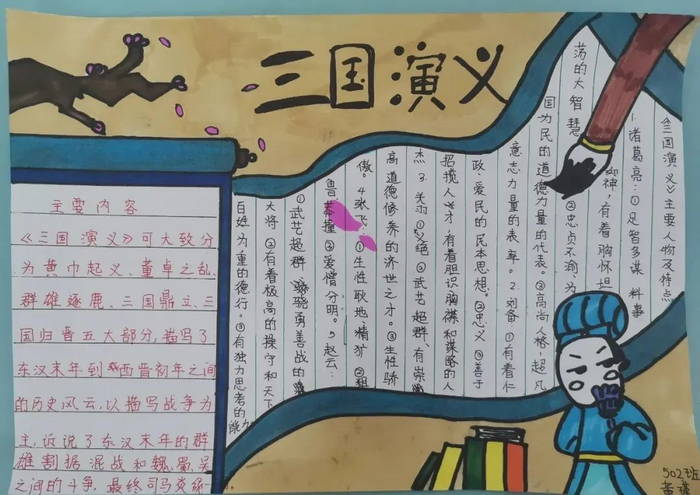 三国演义
主要内容
《三国演义》可大致分
为黄巾起义、董卓之乱、
群雄逐鹿、三国鼎立、三
国归晋五大部分,描写了
东汉末年到西晋初年之间
的历史风云,以描写战争为
主,诉说了东汉末年的群
雄割据混战和魏、蜀、吴
之间的斗争,最终司马炎
《三国演义》主要人物及特点
1.诸葛亮:①足智多谋 料事
如神,有着胸怀坦
荡的大智慧 ②忠贞不渝,为
国为民的道德力量的代表。③高尚人格,超凡
意志力量的表率。2.刘备①有着仁
政、爱民的民本思想。②忠义③善于
招揽人才,有着胆识胸襟和谋略的人
杰 3.关羽①义绝②武艺超群、有崇
高道德修养的济世之才。③生性骄
傲。4张飞、①生性耿地精犷②粗
鲁莽撞③爱憎分明。5赵云:
①武艺超群、骁勇善战的
大将②有着极高的操守和天下
百姓为重的德行。③有独力思考的
502班